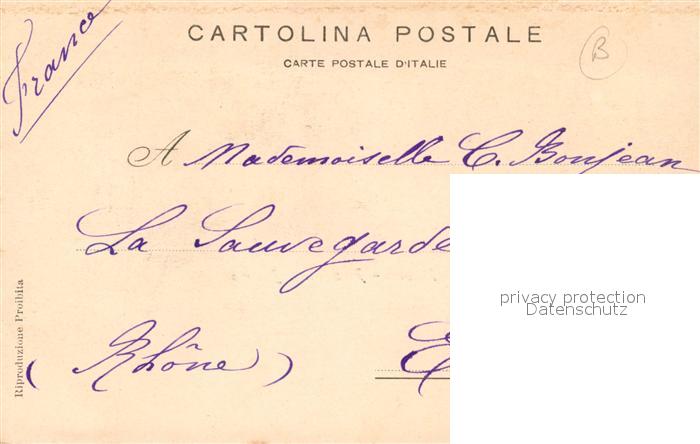 France
CARTOLINA POSTALE
CARTE POSTALE D'ITALIE
B
A Mademoiselle C. Bonjean
La Sauvegarde
(Rhône)
Riproduzione Proibita
privacy protection
Datenschutz